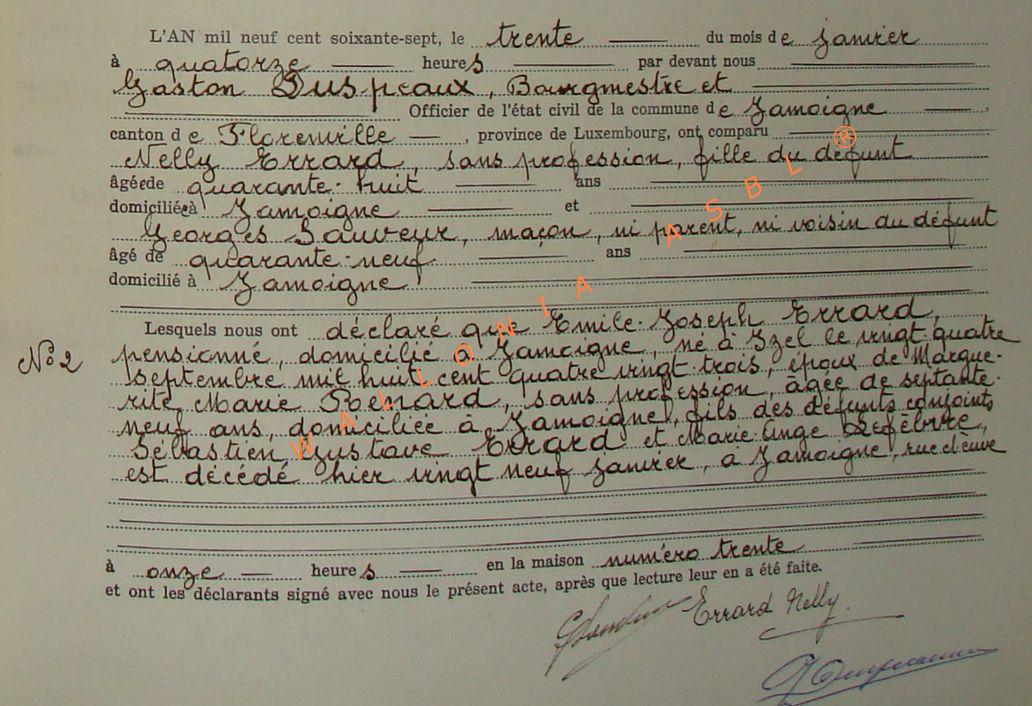 L'AN mil neuf cent soixante-sept, le trente du mois de janvier
à quatorze heures par devant nous
Gaston Buspeaux, Bourgmestre et
Officier de l'état civil de la commune de Jamoigne
canton de Florenville, province de Luxembourg, ont comparu
Nelly Errard, sans profession, fille du défunt
âgée de quarante-huit ans
domiciliée à Jamoigne et
Georges Sauveur, maçon, ni parent, ni voisin du défunt
âgé de quarante-neuf ans
domicilié à Jamoigne
Lesquels nous ont déclaré que Emile-Joseph Errard,
N° 2 pensionné, domicilié à Jamoigne, né à Izel le vingt quatre
septembre mil huit cent quatre vingt trois, époux de Margue-
rite Marie Renard, sans profession, âgée de septante-
neuf ans, domiciliée à Jamoigne, fils des défunts conjoints
Sébastien Gustave Errard et Marie-Ange Lefèbvre,
est décédé hier vingt neuf janvier, à Jamoigne, rue
à onze heures en la maison numéro trente
et ont les déclarants signé avec nous le présent acte, après que lecture leur en a été faite.
Errard Nelly.
WALLONIA ASBL ®